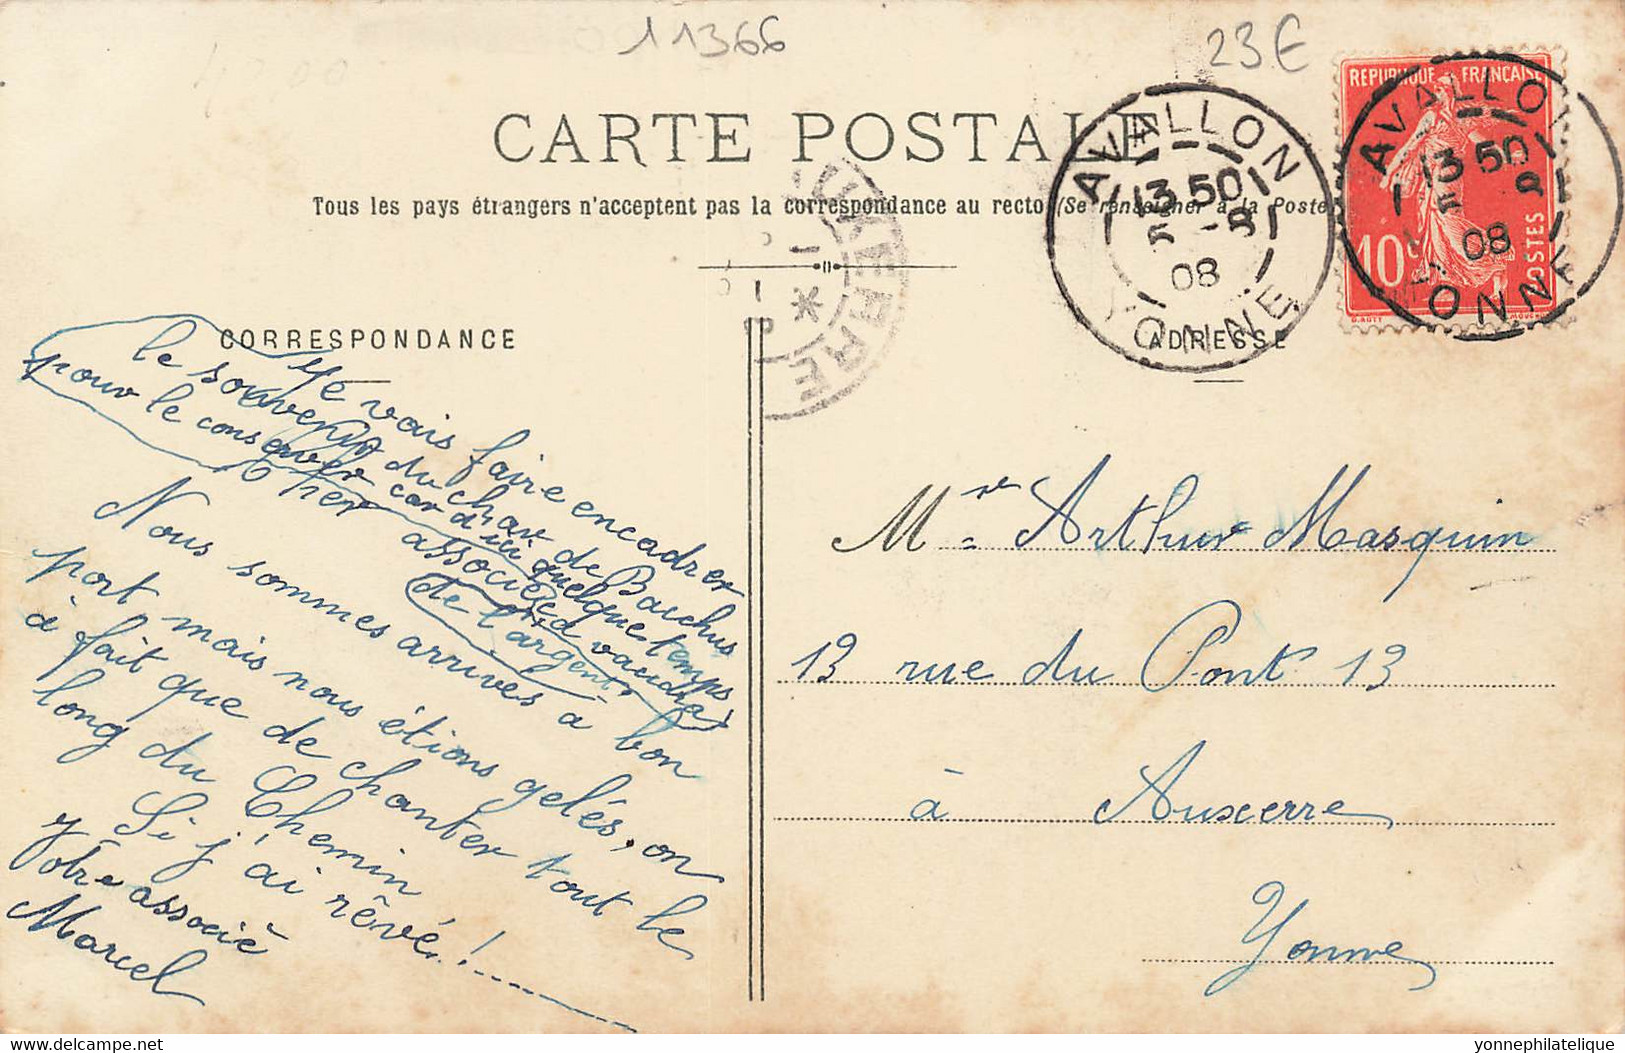 11366
23€
CARTE POSTALE
Tous les pays étrangers n'acceptent pas la correspondance au recto (Se renseigner à la Poste)
CORRESPONDANCE
ADRESSE
AVALLON
13 50
5 - 8
08
YONNE
REPUBLIQUE FRANÇAISE
10c
POSTES
AVALLON
13 50
08
YONNE
AUXERRE
Je vais faire encadrer
le souvenir du char de Bacchus
pour le conserver car d'ici quelque temps
cher associé ça vaudra
de l'argent.
Nous sommes arrivés à bon
port mais nous étions gelés, on
a fait que de chanter tout le
long du Chemin
Si j'ai rêvé!
Votre associé
Marcel
Mr Arthur Masquin
13 rue du Pont 13
à Auxerre
Yonne
yonnephilatelique
delcampe.net